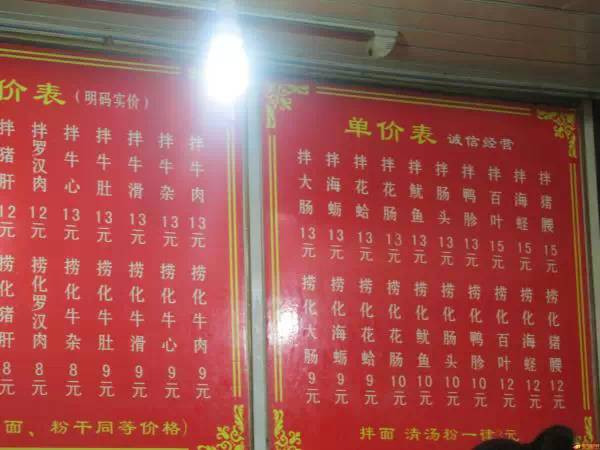 价表(明码实价)
拌猪肝12元
拌罗汉肉12元
拌牛心13元
拌牛肚13元
拌牛滑13元
拌牛杂13元
拌牛肉13元
捞化猪肝8元
捞化罗汉肉8元
捞化牛杂8元
捞化牛肚9元
捞化牛滑9元
捞化牛心9元
捞化牛肉9元
面、粉干同等价格)
单价表 诚信经营
拌大肠13元
拌海蛎13元
拌花蛤13元
拌花肠13元
拌鱿鱼13元
拌肠头13元
拌鸭胗13元
拌百叶15元
拌海蛏15元
拌猪腰15元
捞化大肠9元
捞化海蛎9元
捞化花蛤9元
捞化花肠10元
捞化鱿鱼10元
捞化肠头10元
捞化鸭胗10元
捞化百叶12元
捞化海蛏12元
捞化猪腰12元
拌面 清汤粉一律3元